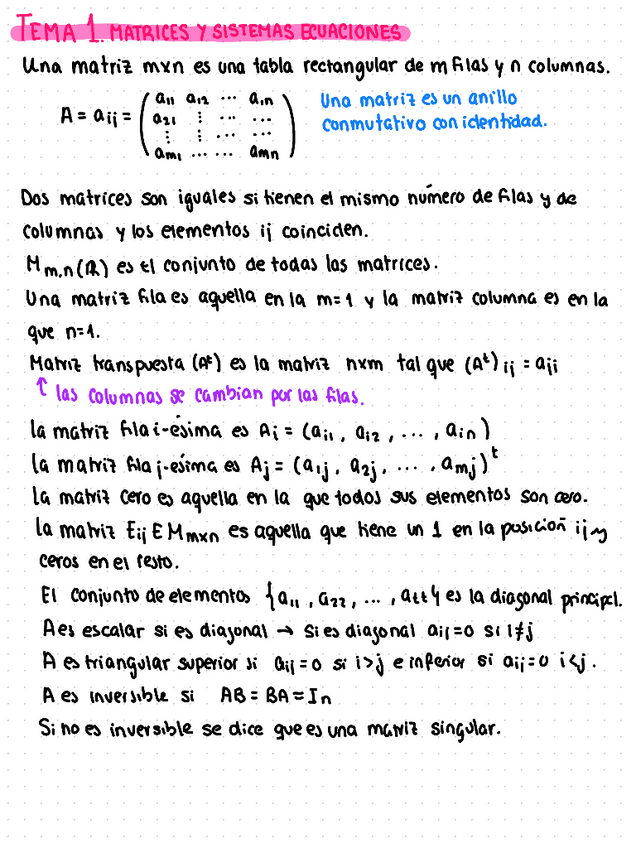 TEMA 1. MATRICES Y SISTEMAS ECUACIONES
Una matriz mxn es una tabla rectangular de m filas y n columnas.
A = aij = ( a11 a12 ... a1n
a21 ⋮ ... ...
⋮ ⋮ ... ...
am1 ... ... amn )
Una matriz es un anillo
conmutativo con identidad.
Dos matrices son iguales si tienen el mismo número de filas y de
columnas y los elementos ij coinciden.
Mm,n(R) es el conjunto de todas las matrices.
Una matriz fila es aquella en la m=1 y la matriz columna es en la
que n=1.
Matriz transpuesta (At) es la matriz nxm tal que (At)ij = aji
↑ las columnas se cambian por las filas.
la matriz fila i-ésima es Ai = (ai1, ai2, ..., ain)
la matriz fila j-ésima es Aj = (a1j, a2j, ..., amj)t
la matriz cero es aquella en la que todos sus elementos son cero.
la matriz Eij ∈ Mmxn es aquella que tiene un 1 en la posición ij y
ceros en el resto.
El conjunto de elementos {a11, a22, ..., att} es la diagonal principal.
A es escalar si es diagonal → si es diagonal aij=0 si i≠j
A es triangular superior si aij=0 si i>j e inferior si aij=0 i<j.
A es inversible si AB=BA=In
Si no es inversible se dice que es una matriz singular.